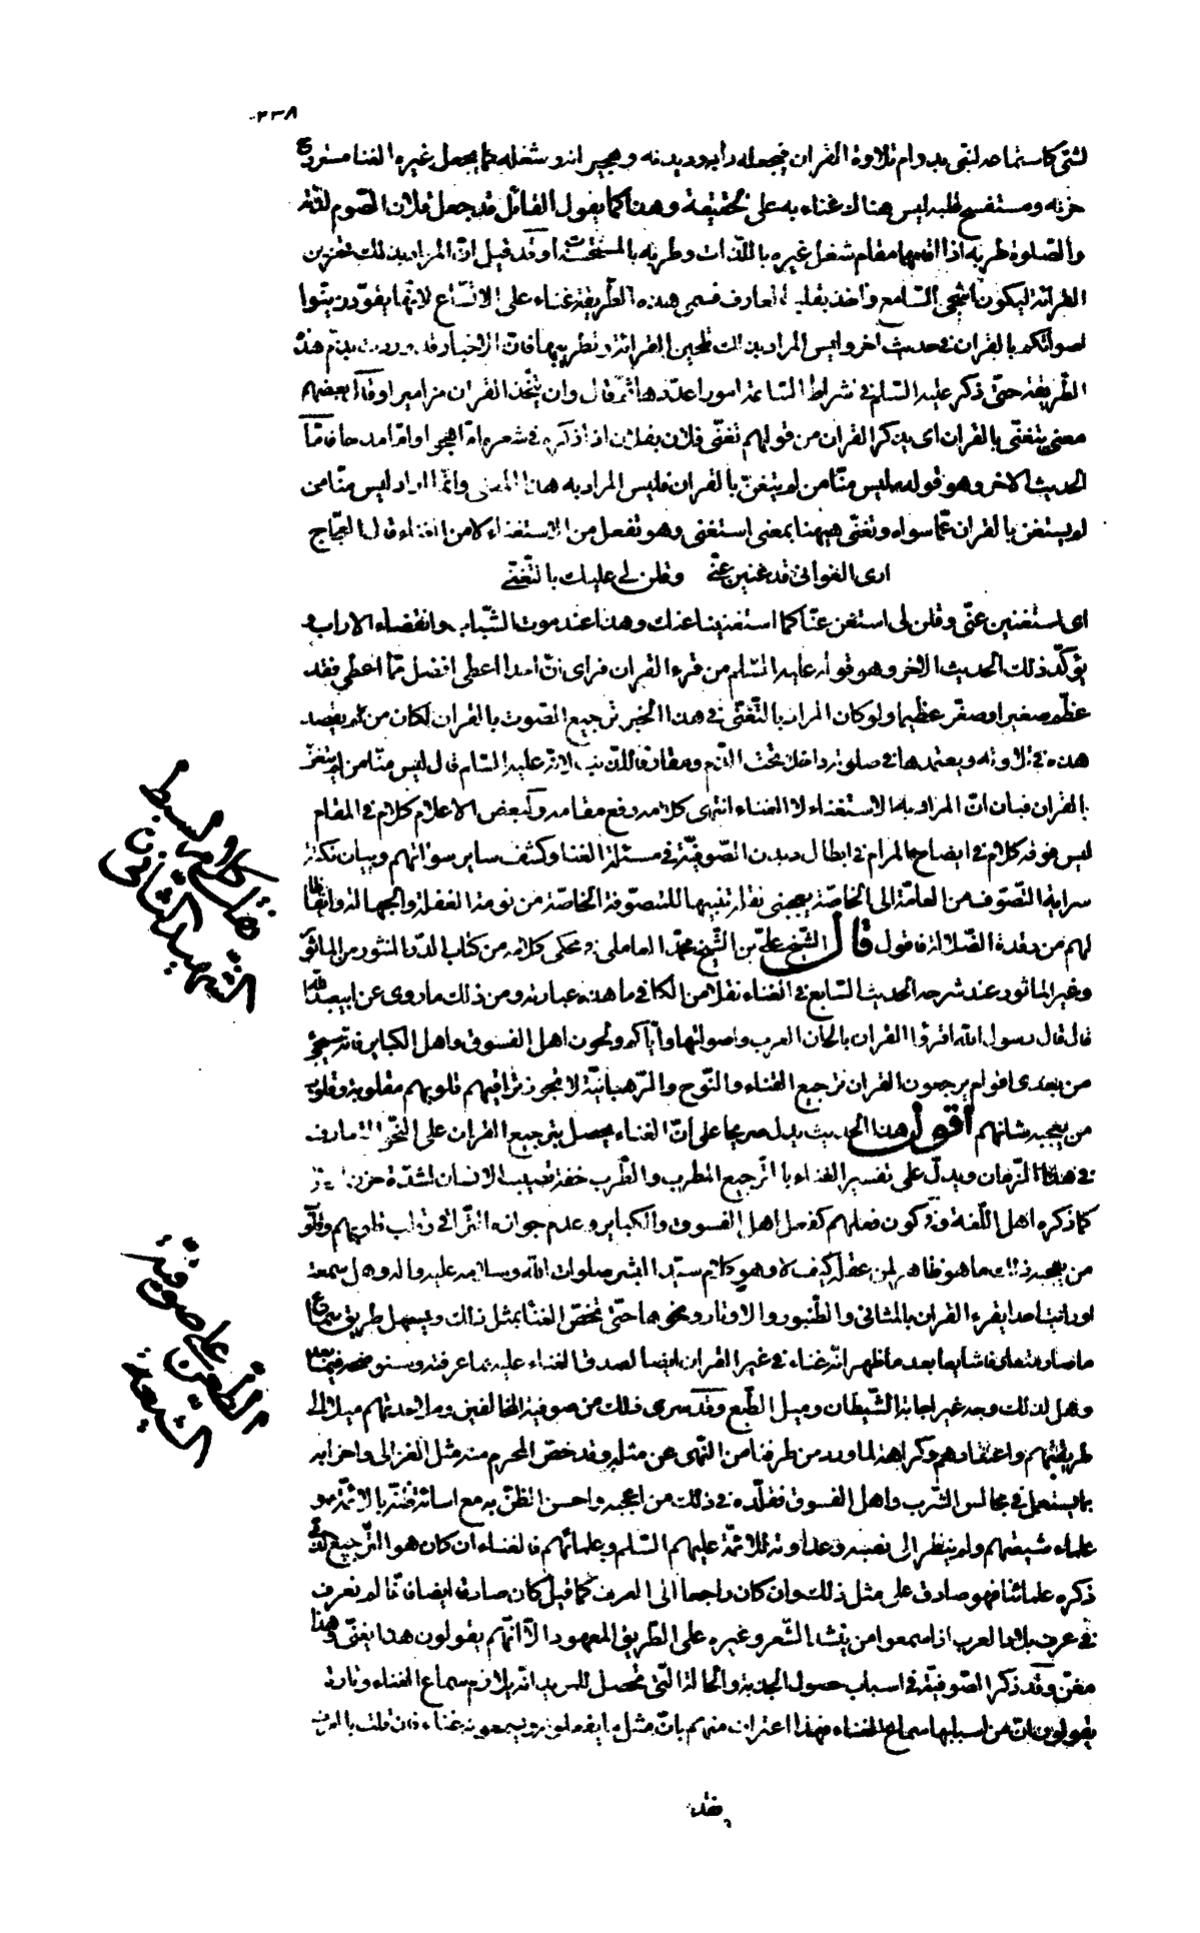 ٢٣٨
لشئ كاستماعه لتغنى بدوام تلاوة القران فيجعله دابه وديدنه وهجيراه وشغله كما يجعل غيره الغنا مستروح
حزنه ومستفسح قلبه ليس هناك غناء به على الحقيقة وهذا كما يقول القائل قد جعل فلان الصوم لذته
والصلوة طربه اذا اقامهما مقام شغل غيره باللذات وطربه بالمستحسنات وقد قيل ان المراد بذلك تحزين
القرائة ليكون اشجى للسامع واخذ بقلب العارف فسمى هذه الطريقة غناء على الاتساع لانها يقود زينوا
اصواتكم بالقران في حديث اخر وليس المراد بذلك تلحين القرائة وتطريبها فان الاخبار قد وردت بذم هذه
الطريقة حتى ذكر عليه السلم في شرايط الساعة امورا عددها ثم قال وان يتخذ القران مزامير وقال بعضهم
معنى يتغنى بالقران اى يذكر القران من قولهم تغنى فلان بفلان اذا ذكره في شعره اما هجوا واما مدحا فاما
الحديث الاخر وهو قوله ليس منا من لم يتغن بالقران فليس المراد به هذا المعنى وانما اراد ليس منا من
لم يستغن بالقران عما سواه وتغنى هيهنا بمعنى استغنى وهو تفعل من الاستغناء لا من الغناء قال العجاج
ارى الغوانى قد غنين عنى وقلن لى عليك بالتغنى
اى استغنين عنى وقلن لى استغن عنا كما استغنينا عنك وهذا عند موت الشباب وانقضاء الاراب و
يؤكد ذلك الحديث الاخر وهو قوله عليه السلم من قرء القران فراى ان احدا اعطى افضل مما اعطى فقد
عظم صغيرا وصغر عظيما ولو كان المراد بالتغنى في هذا الخبر ترجيع الصوت بالقران لكان من لم يقصد
هذه في تلاوته ويعتمدها في صلوته داخلا تحت الذم ومقارفا للذنب لانه عليه السلم قال ليس منا من لم يتغن
بالقران فبان ان المراد به الاستغناء لا الغناء انتهى كلامه رفع مقامه ولبعض الاعلام كلام في المقام
ليس فوقه كلام في ايضاح المرام في ابطال ديدن الصوفية في مسئلة الغنا وكشف ساير سواتهم وبيان نكتة
سراية التصوف من العامة الى الخاصة يعجبنى نقله تنبيها للمتصوفة الخاصة من نومة الغفلة والجهالة وايقاظا
لهم من رقدة الضلالة فاقول قال الشيخ على بن الشيخ محمد العاملى في محكى كلامه من كتاب الدر المنثور من الماثور
وغير الماثور عند شرحه الحديث السابع في الغناء نقلا من الكافى ما هذه عبارته ومن ذلك ما روى عن ابيعبد الله
قال قال رسول الله اقرؤا القران بالحان العرب واصواتها واياكم ولحون اهل الفسوق واهل الكباير فانه سيجئ
من بعدى اقوام يرجعون القران ترجيع الغناء والنوح والرهبانية لا تجوز تراقيهم قلوبهم مقلوبة وقلوب
من يعجبه شانهم اقول هذا الحديث يدل صريحا على ان الغناء يحصل بترجيع القران على النحو المتعارف
في هذا الزمان ويدل على تفسير الغناء بالترجيع المطرب والطرب خفة تصيب الانسان لشدة حزن
كما ذكره اهل اللغة وفى كون فعلهم كفعل اهل الفسوق والكباير وعدم جوازه التراقى وقلب قلوبهم وقلوب
من يعجبه ذلك ما هو ظاهر لمن عقل كيف لا وهو كلام سيد البشر صلوات الله وسلامه عليه واله وهل سمعت
او رايت احدا يقرء القران بالمثانى والطنبور والاوتار ونحوها حتى تخص الغنا بمثل ذلك ويسهل طريق سماع
ما صار متعارفا شايعا بعد ما ظهر انه غناء في غير القران ايضا لصدق الغناء عليه بما عرفته
وهل لذلك وجه غير اجابة الشيطان وميل الطبع وقد سرى ذلك من صوفية المخالفين وما بعدتهم ميلا الى
طريقتهم واعتقادهم وكراهة لما ورد من طرقنا من النهى عن مثله وقد خص المحرم منه مثل الغزالى واحزابه
بما يستعمل في مجالس الشرب واهل الفسوق فقلده في ذلك من اعجبه واحسن الظن به مع اسائة ظنه بالائمة و
علماء شيعتهم ولم ينظر الى نصبه وعداوته للائمة عليهم السلم وعلمائهم فالغناء ان كان هو الترجيع الذى
ذكره علمائنا فهو صادق على مثل ذلك وان كان راجعا الى العرف كما قيل كان صادقا ايضا فانا لم نعرف
في عرف بلاد العرب اذا سمعوا من ينشد الشعر وغيره على الطريق المعهود الا انهم يقولون هذا يغنى وهذا
مغن وقد ذكر الصوفية في اسباب حصول الجذبة والحالة التى تحصل للمريد انه يلازم سماع الغناء وتارة
يقولون ان من اسبابها سماع الغناء فهذا اعتراف منهم بان مثل ما يفعلونه ويسمعونه غناء فان قلت
فقد
هنا كلام لسبط
الشهيد الثانى
الطعن على صوفية
الشيعة